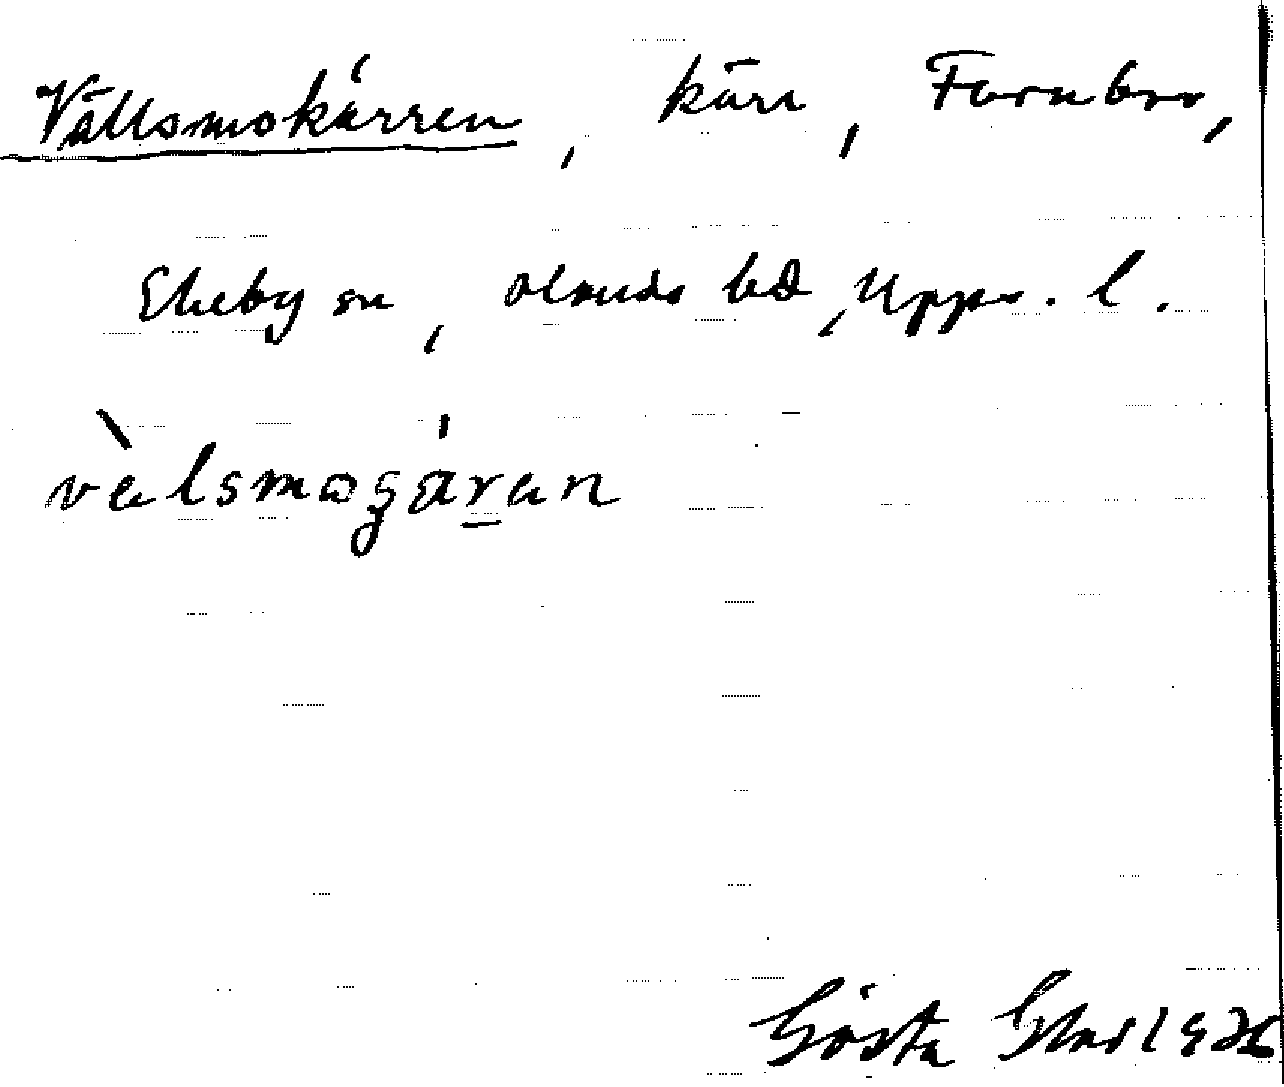 Vällsmokärren, kärr, Fornbro,
Ekeby sn, Olands hd, Upps. l.
vèlsmoǥáran
Gösta